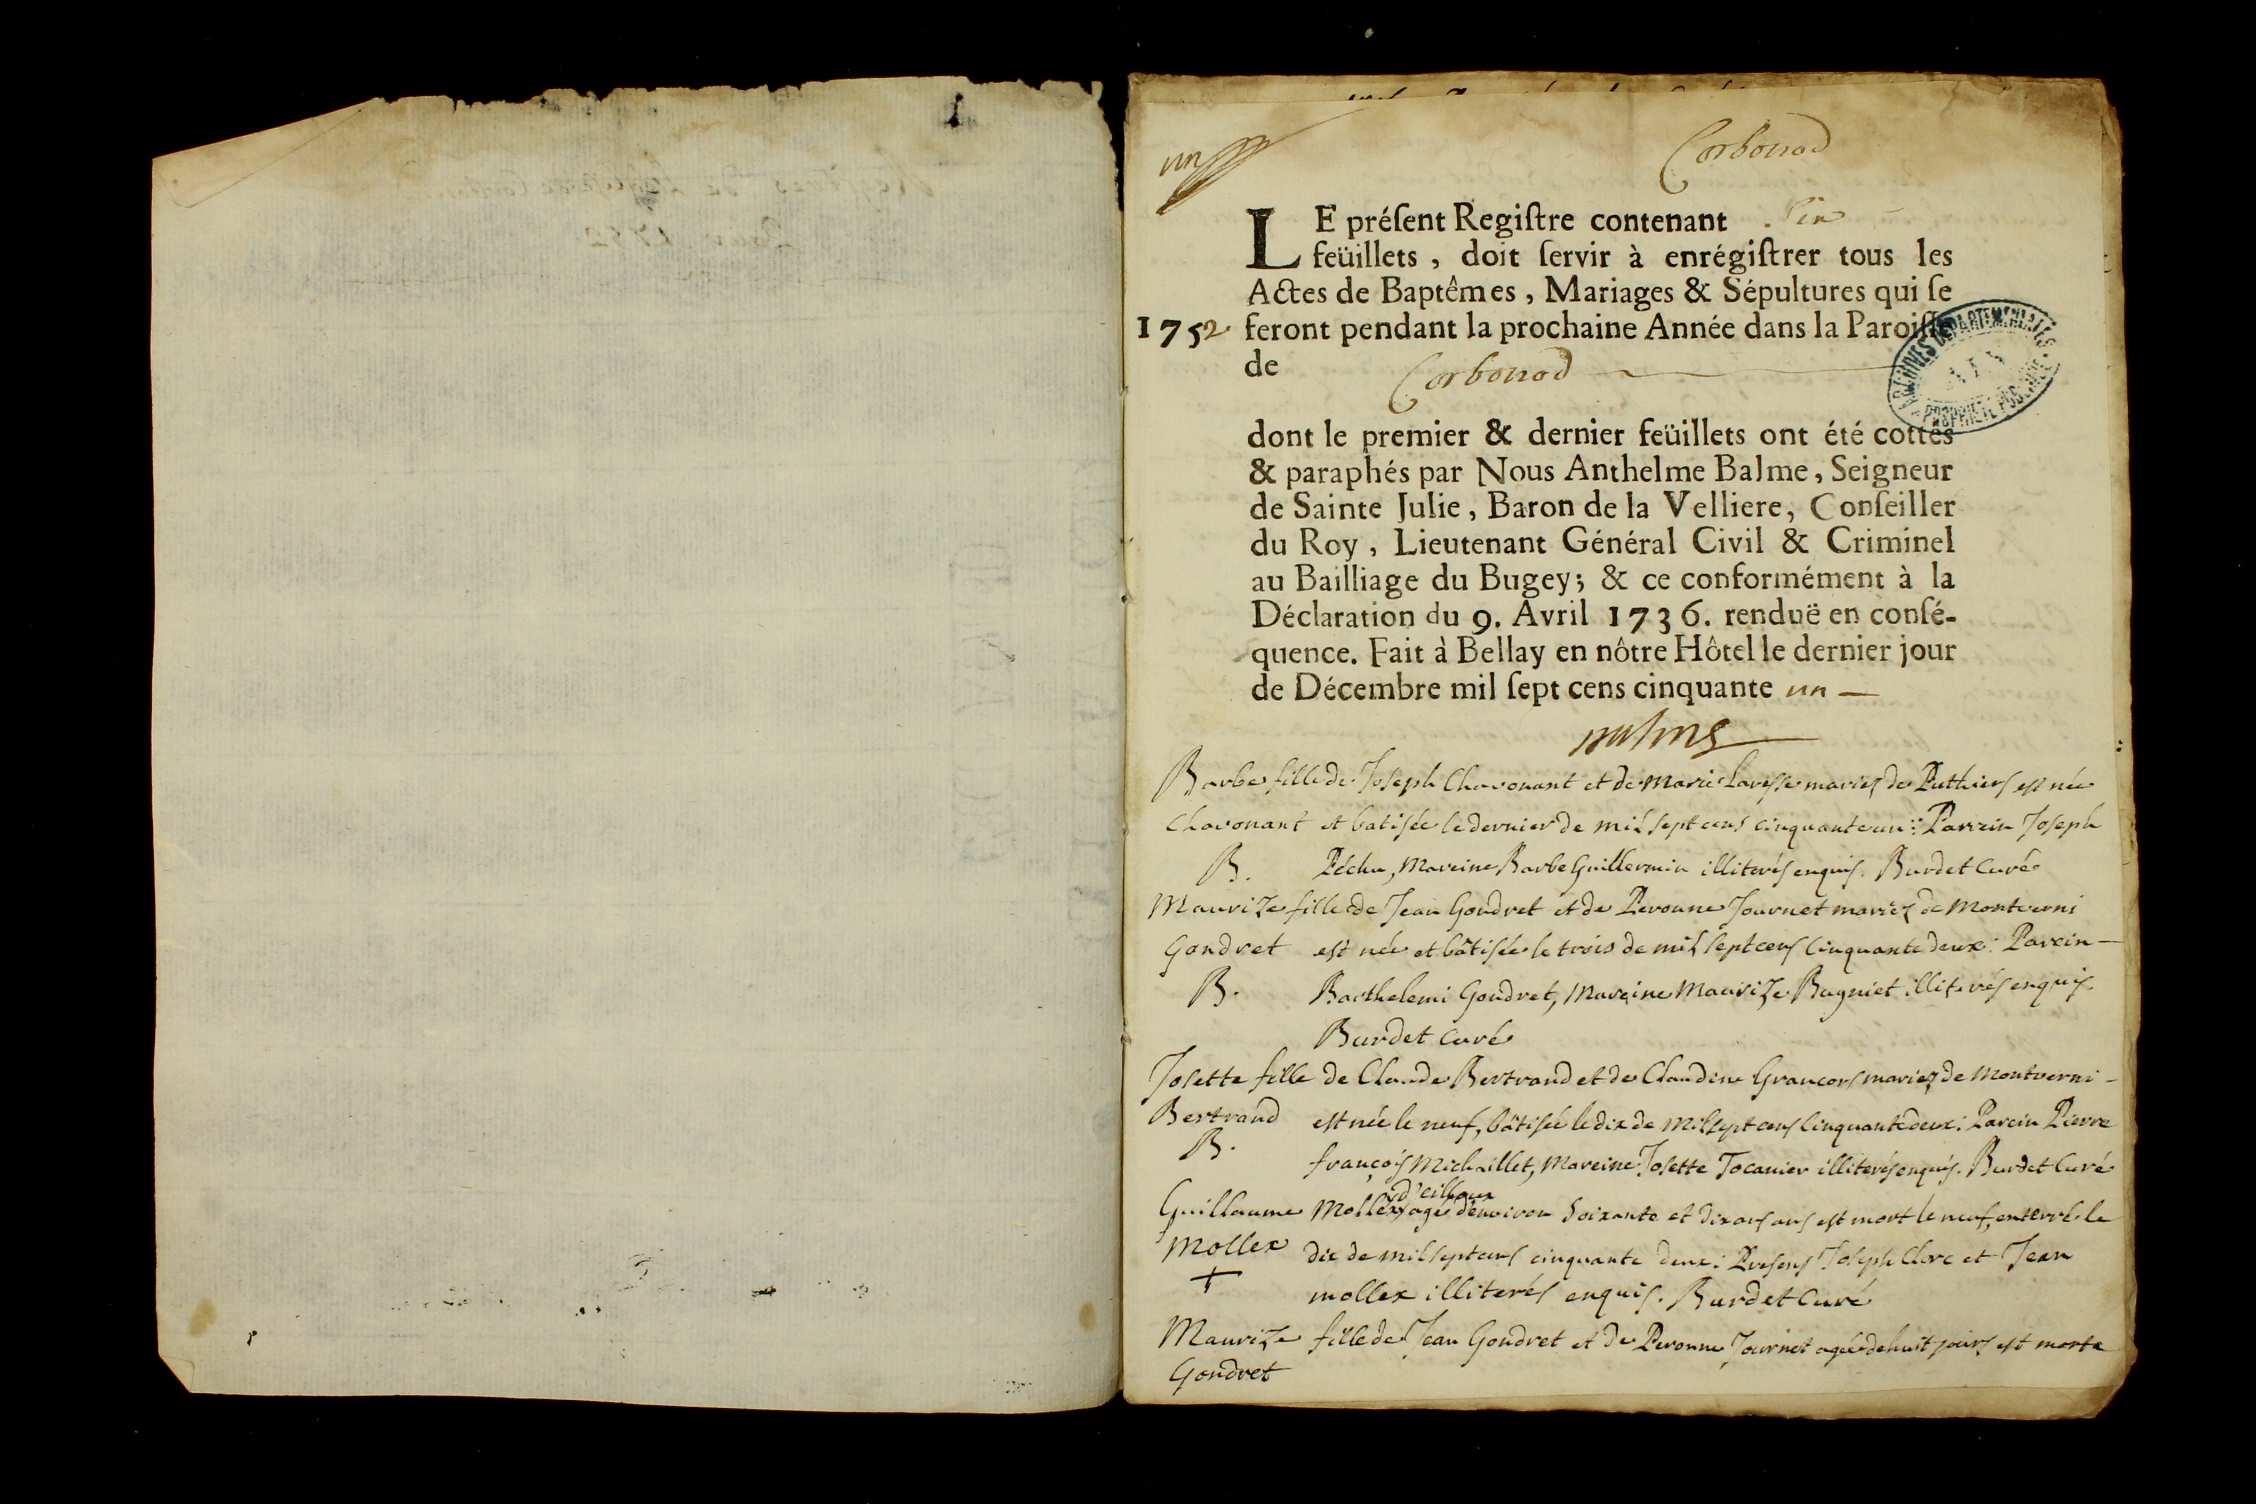 un
Corbonod
LE préſent Regiſtre contenant Six
feüillets, doit ſervir à enrégiſtrer tous les
Actes de Baptêmes, Mariages & Sépultures qui ſe
1752 feront pendant la prochaine Année dans la Paroiſſe
de Corbonod
ARCHIVES DEPARTEMENTALES
PROPRIETE PUBLIQUE
dont le premier & dernier feüillets ont été cottés
& paraphés par Nous Anthelme Balme, Seigneur
de Sainte Julie, Baron de la Velliere, Conſeiller
du Roy, Lieutenant Général Civil & Criminel
au Bailliage du Bugey; & ce conformément à la
Déclaration du 9. Avril 1736. renduë en conſé-
quence. Fait à Bellay en nôtre Hôtel le dernier jour
de Décembre mil ſept cens cinquante un
Balme
Barbe fille de Joseph Chavonant et de Marie mariés de Puthiers est née
Chavonant et batisée le dernier de mil sept cens cinquante un : Parrein Joseph
B. Péchu, Mareine Barbe Guillermin illiterés enquis. Burdet Curé
Maurize fille de Jean Gondret et de Peronne Journet mariés de Montverni
Gondret est née et bâtisée le trois de mil sept cens cinquante deux : Parein
B. Barthelemi Gondret, Mareine Maurize Bugniet illiterés enquis
Burdet Curé
Josette fille de Claude Bertrand et de Claudine mariez de Montverni
Bertrand est née le neuf, bâtisée le dix de mil sept cens cinquante deux : Parein Pierre
B. françois Michaillet, Mareine Josette Tocanier illiterés enquis. Burdet Curé
Guillaume Mollex d'eilloux agé d'environ soixante et dix ans est mort le neuf, enterré le
Mollex dix de mil sept cens cinquante deux : Presens Joseph Clerc et Jean
+ mollex illiterés enquis. Burdet Curé
Maurize fille de Jean Gondret et de Peronne Journet agée de huit jours est morte
Gondret